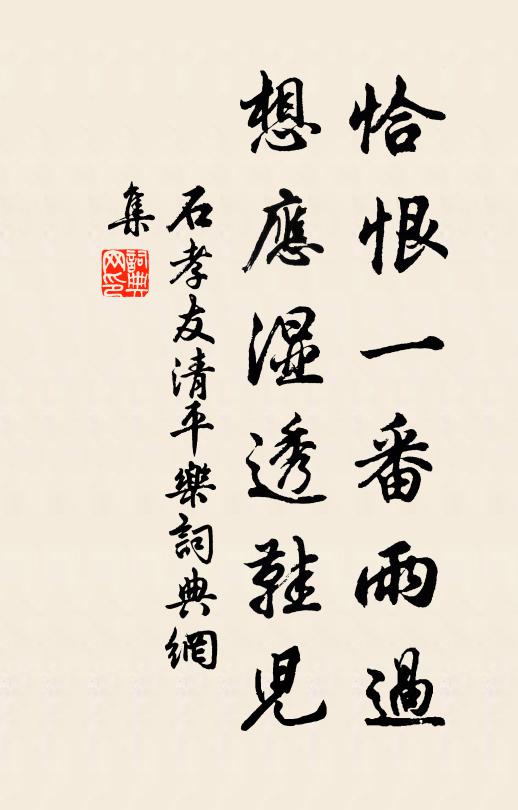 恰恨一番雨過
想應湿透鞋兒
石孝友清平樂詞典網
集
詞典网印